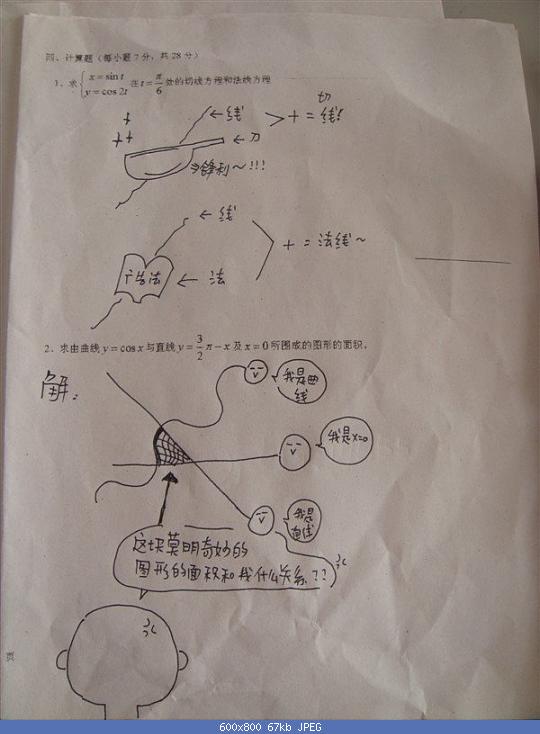 四、计算题（每小题7分，共28分）
1、求 { x = sin t
y = cos 2t 在 t = π/6 处的切线方程和法线方程
← 线
切
> + = 线!
← 刀
锋利~!!!
← 线
+ = 法线~
广告法 ← 法
2、求由曲线 y = cos x 与直线 y = 3/2 π − x 及 x = 0 所围成的图形的面积。
解：
我是曲
线
我是x=0
我是
直线
这块莫明奇妙的
图形的面积和我什么关系??
页
600x800 67kb JPEG